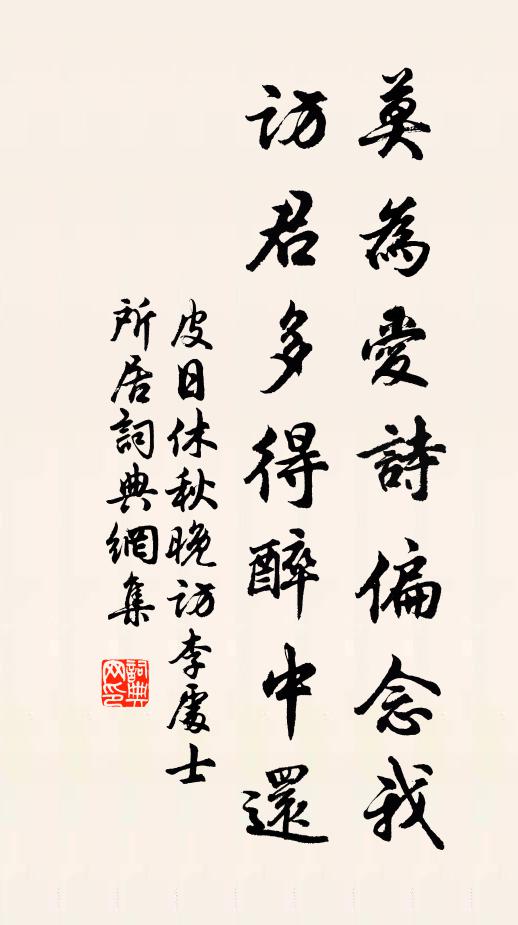 莫為愛詩偏念我
訪君多得醉中還
皮日休秋晚訪李處士
所居詞典網集
詞典
网印